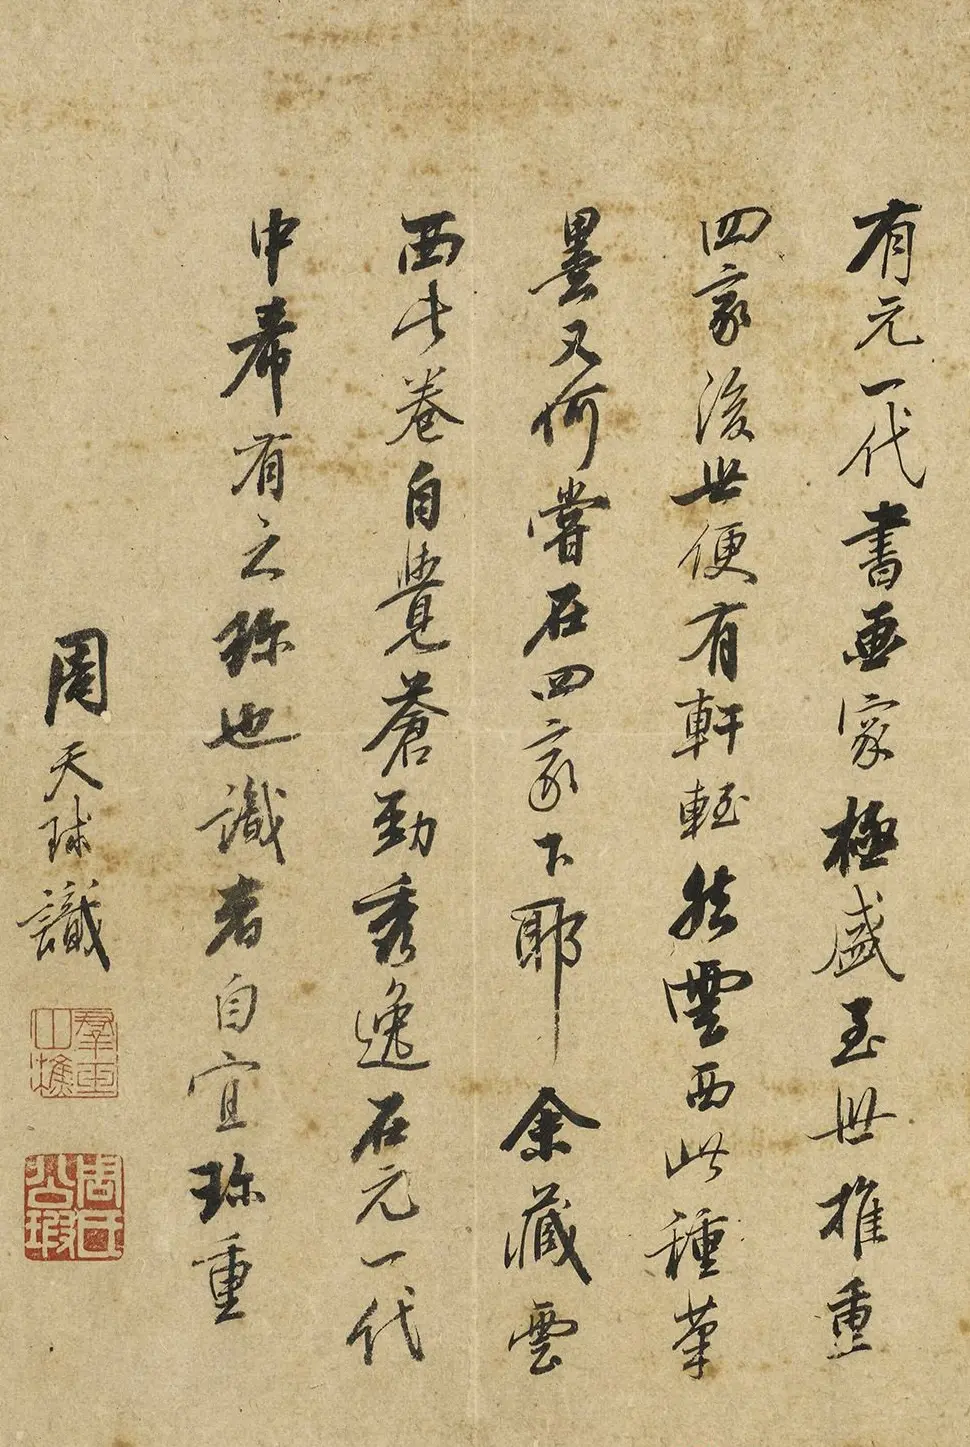 有元一代書画家極盛至世推重
四家後世便有軒輊然雲西此種筆
墨又何嘗在四家下耶余藏雲
西此卷自覺蒼勁秀逸在元一代
中希有之珎也識者自宜珎重
周天球識
羣玉山樵
周氏公瑕